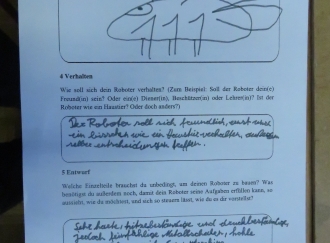 4 Verhalten
Wie soll sich dein Roboter verhalten? (Zum Beispiel: Soll der Roboter dein(e)
Freund(in) sein? Oder ein(e) Diener(in), Beschützer(in) oder Lehrer(in)? Ist der
Roboter wie ein Haustier? Oder doch anders?)
Der Roboter soll sich freundlich,
ein bisschen wie ein Haustier verhalten,
selber entscheidungen treffen.
5 Entwurf
Welche Einzelteile brauchst du unbedingt, um deinen Roboter zu bauen? Was
benötigst du außerdem noch, damit dein Roboter seine Aufgaben erfüllen kann, so
aussieht, wie du möchtest, und sich so steuern lässt, wie du es dir vorstellst?
Sehr harte, hitzebeständige und
jedoch